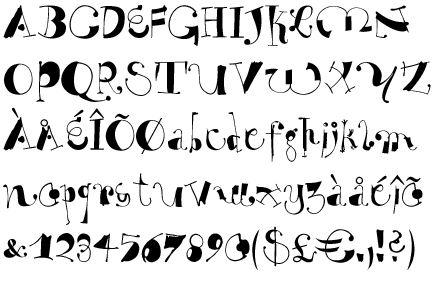 ABCDEFGHIJKLMN
OPQRSTUVWXYZ
ÀÅÉÎÕØabcdefghijklm
nopqrstuvwxyzàåéîõ
&1234567890($£€.,!?)